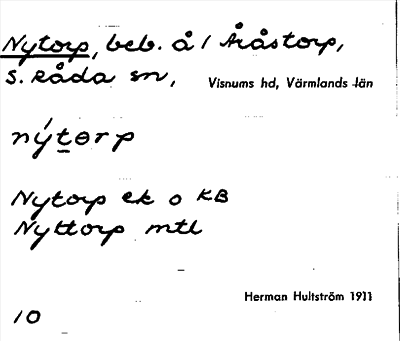 Nytorp, beb. å / Åråstorp,
S. Råda sn, Visnums hd, Värmlands län
nýtorp
Nytorp ek o KB
Nyttorp mtl
Herman Hultström 1911
10